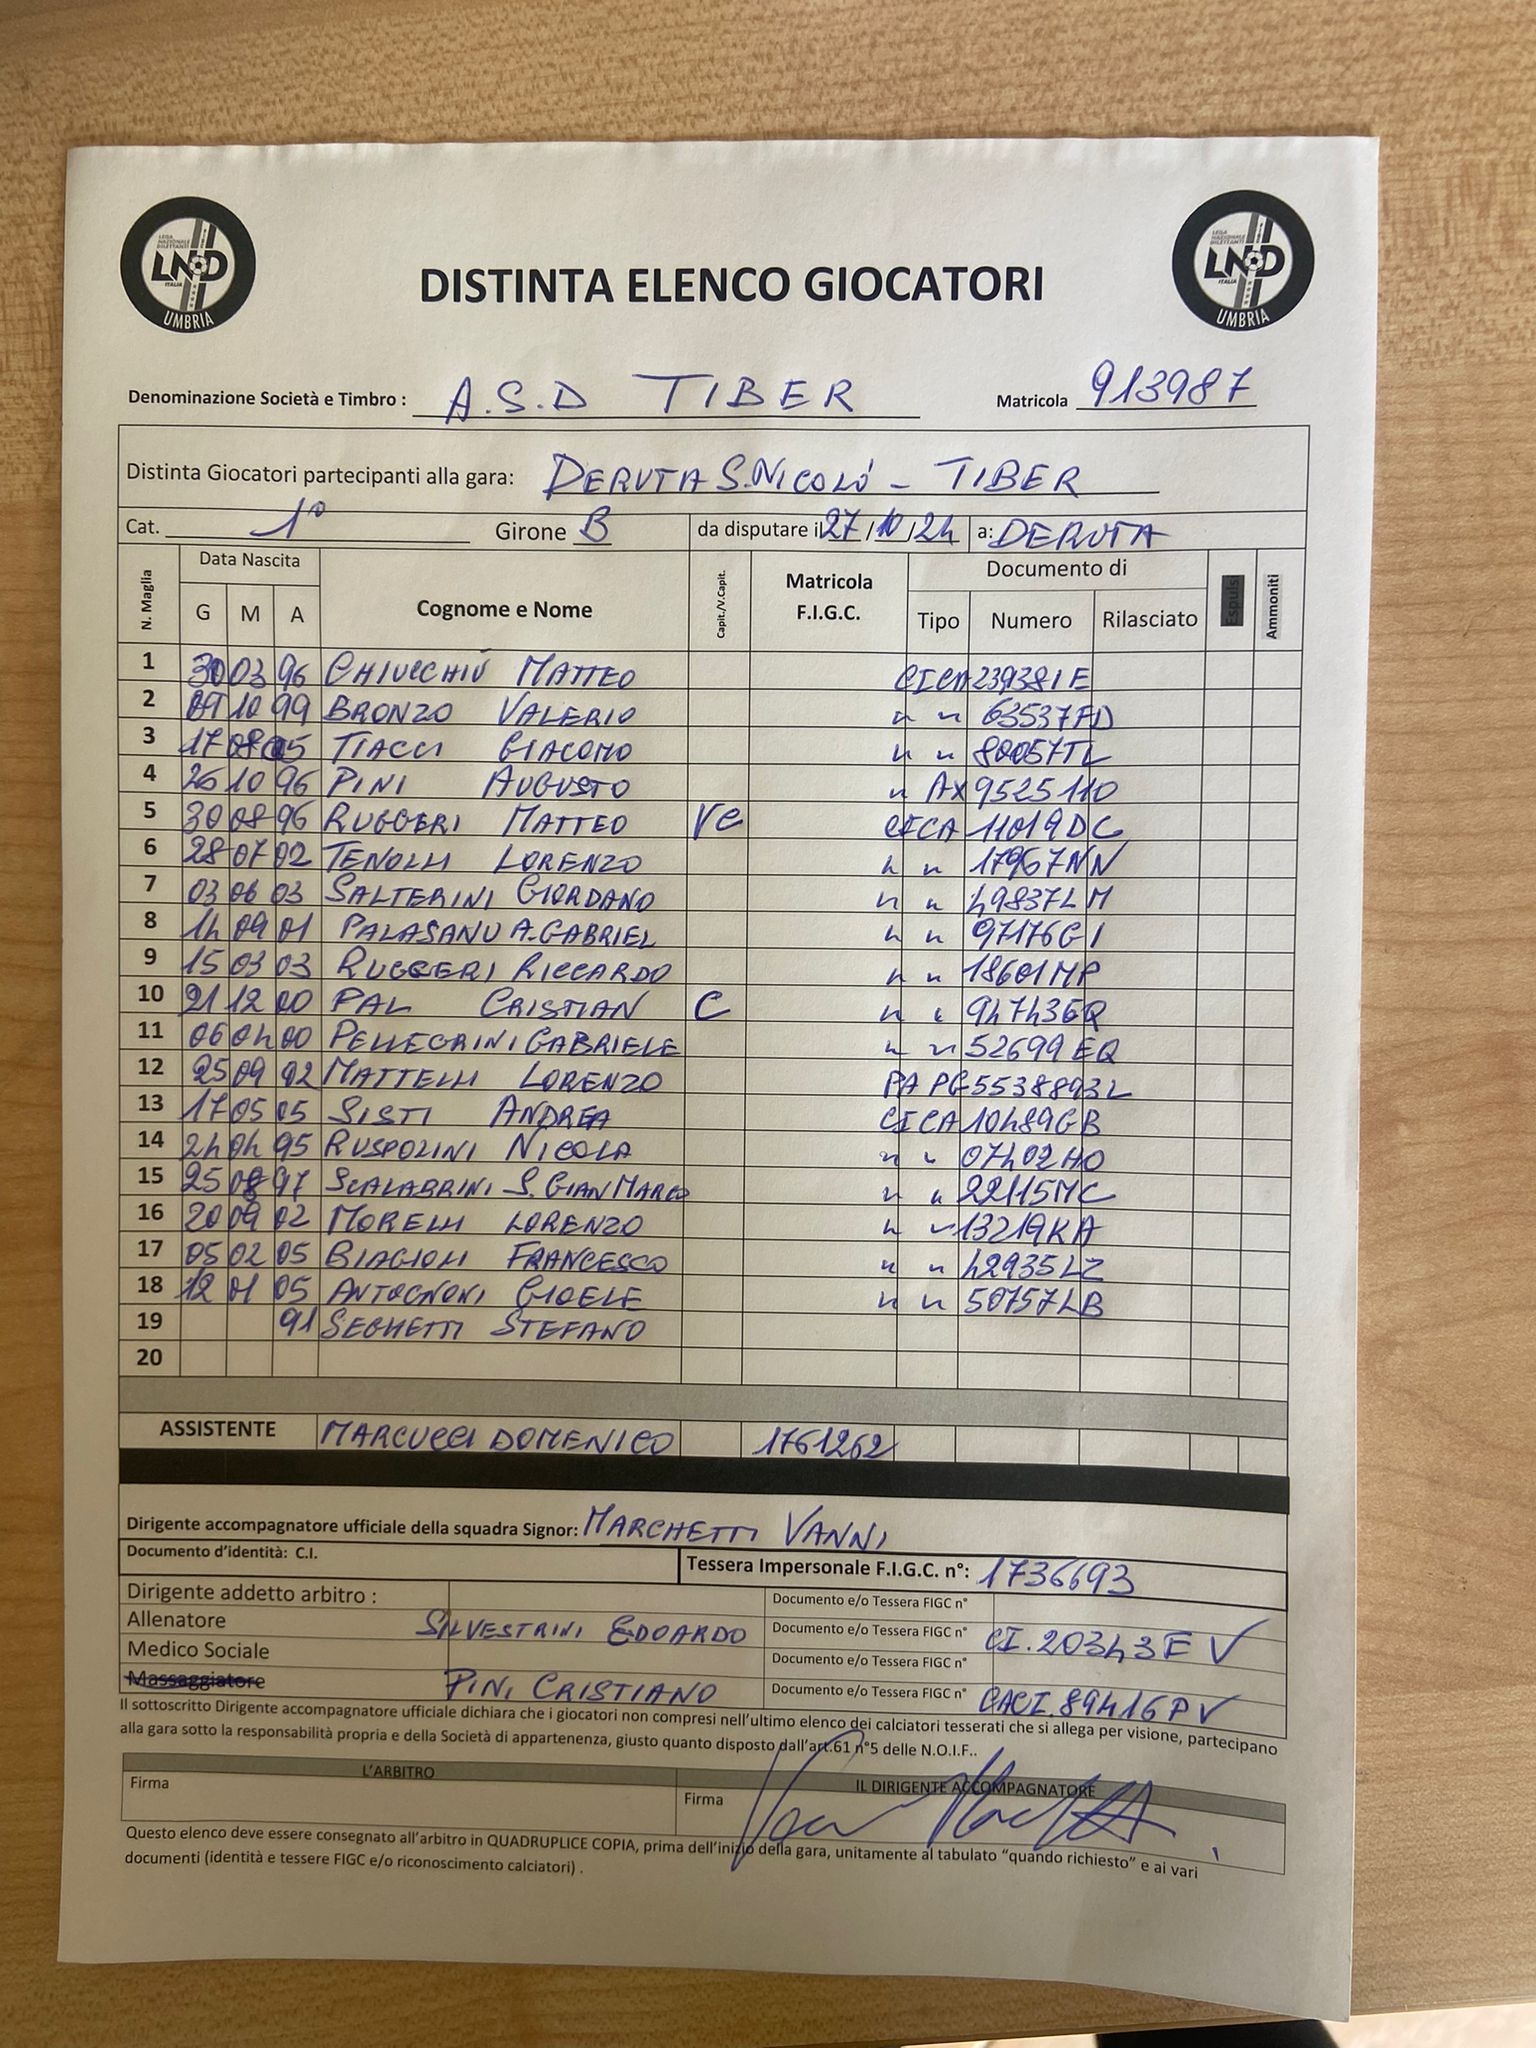 LEGA NAZIONALE DILETTANTI LND ITALIA UMBRIA
DISTINTA ELENCO GIOCATORI
LEGA NAZIONALE DILETTANTI LND ITALIA UMBRIA
Denominazione Società e Timbro : A.S.D TIBER Matricola 913987
Distinta Giocatori partecipanti alla gara: DERUTA S.NICOLÓ - TIBER
Cat. 1° Girone B da disputare il 27/10/24 a: DERUTA
N. Maglia Data Nascita Cognome e Nome Capit./V.Capit. Matricola F.I.G.C. Documento di Espulsi Ammoniti
G M A Tipo Numero Rilasciato
1 30 03 96 CHIUCCHIÚ MATTEO CI CA 239381E
2 09 10 99 BRONZO VALERIO " " 63537FD
3 17 08 05 TIACCI GIACOMO " " 80057TL
4 26 10 96 PINI AUGUSTO " AX 9525110
5 30 08 96 RUGGERI MATTEO VC CI CA 11019DC
6 28 07 02 TENOLLI LORENZO " " 17967NN
7 03 06 03 SALTERINI GIORDANO " " 49837LM
8 14 09 01 PALASANU A.GABRIEL " " 97176GI
9 15 03 03 RUGGERI RICCARDO " " 18601MP
10 21 12 00 PAL CRISTIAN C " " 94743EQ
11 06 04 00 PELLEGRINI GABRIELE " " 52699EQ
12 25 09 02 MATTELLI LORENZO PA PG5538893L
13 17 05 05 SISTI ANDREA CI CA 10489GB
14 24 04 95 RUSPOLINI NICOLA " " 07402HO
15 25 08 97 SCALABRINI S. GIANMARCO " " 22115MC
16 20 09 02 MORELLI LORENZO " " 13219KA
17 05 02 05 BIAGIOLI FRANCESCO " " 42935LZ
18 12 01 05 ANTOGNONI GIOELE " " 50757LB
19 91 SEGHETTI STEFANO
20
ASSISTENTE MARCUCCI DOMENICO 1761262
Dirigente accompagnatore ufficiale della squadra Signor: MARCHETTI VANNI
Documento d'identità: C.I. Tessera Impersonale F.I.G.C. n°: 1736693
Dirigente addetto arbitro : Documento e/o Tessera FIGC n°
Allenatore SILVESTRINI EDOARDO Documento e/o Tessera FIGC n° CI. 20343FV
Medico Sociale Documento e/o Tessera FIGC n°
Massaggiatore PINI CRISTIANO Documento e/o Tessera FIGC n° CACI. 89416PV
Il sottoscritto Dirigente accompagnatore ufficiale dichiara che i giocatori non compresi nell'ultimo elenco dei calciatori tesserati che si allega per visione, partecipano
alla gara sotto la responsabilità propria e della Società di appartenenza, giusto quanto disposto dall'art.61 n°5 delle N.O.I.F..
L'ARBITRO IL DIRIGENTE ACCOMPAGNATORE
Firma Firma
Questo elenco deve essere consegnato all'arbitro in QUADRUPLICE COPIA, prima dell'inizio della gara, unitamente al tabulato "quando richiesto" e ai vari
documenti (identità e tessere FIGC e/o riconoscimento calciatori) .